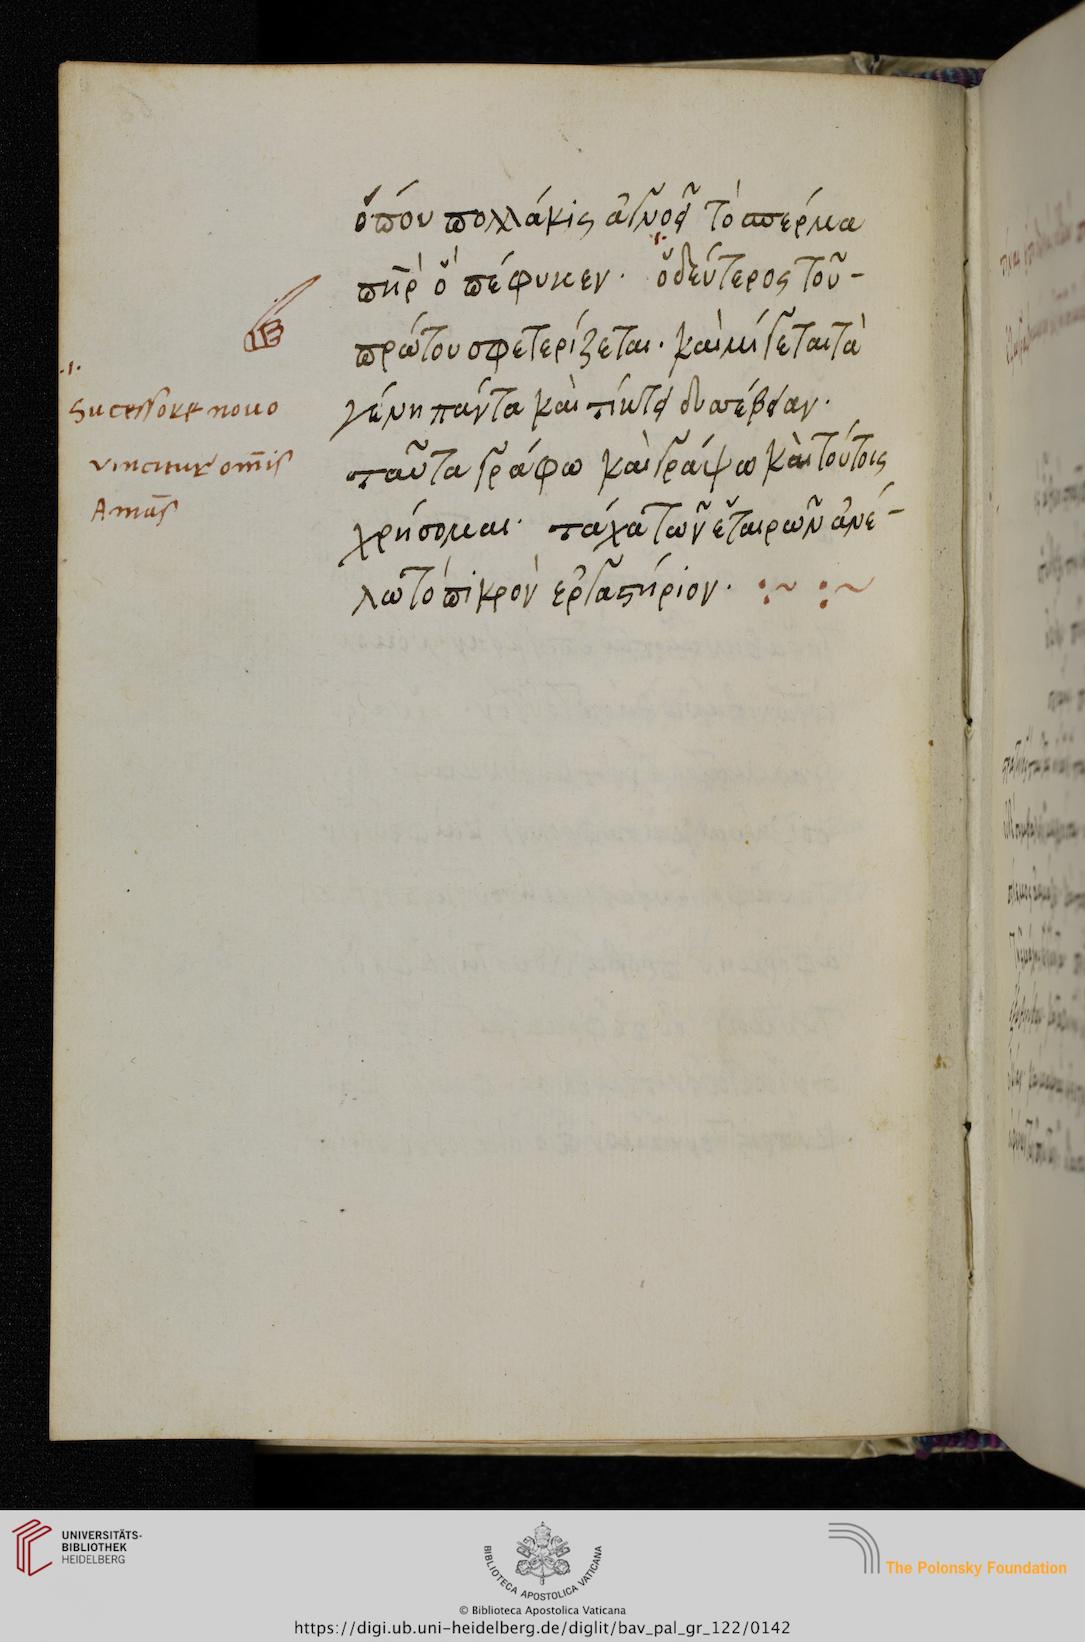 ὅπου πολλάκις ἀγνοεῖ τὸ σπέρμα
πῆρ ὃ πέφυκεν. ὁ δεύτερος τοῦ-
πρώτου σφετερίζεται. καὶ μίγεται τὰ
γένη πάντα καὶ τίκτει δυσέβειαν.
ταῦτα γράφω καὶ γράψω καὶ τούτοις
χρήσομαι. τάχα τῶν ἑταιρῶν ἀνέ-
λω τὸ πικρὸν ἐργαστήριον. :~ :~
.1.
Sucessore nouo
vincitur om̄is
Amās
UNIVERSITÄTS-
BIBLIOTHEK
HEIDELBERG
BIBLIOTECA APOSTOLICA VATICANA
The Polonsky Foundation
© Biblioteca Apostolica Vaticana
https://digi.ub.uni-heidelberg.de/diglit/bav_pal_gr_122/0142